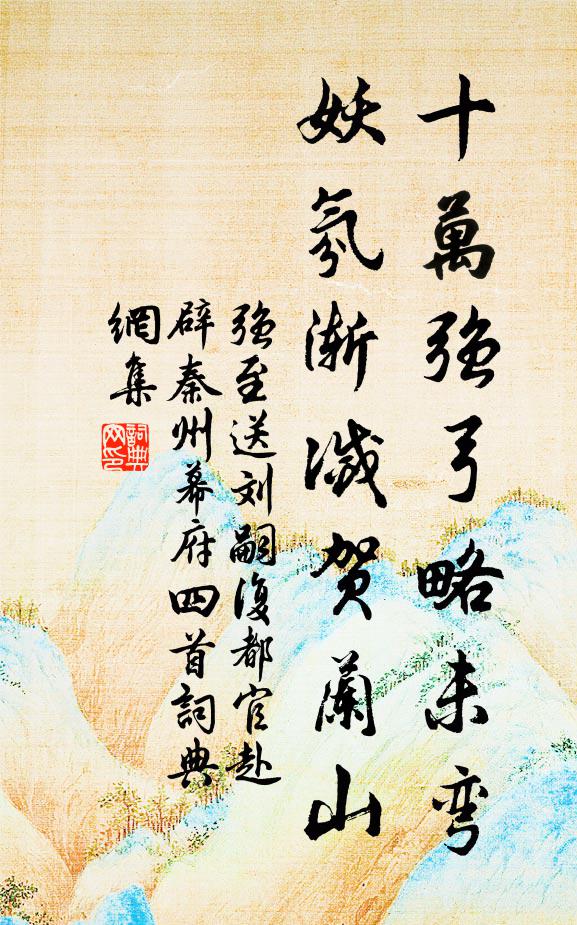 十萬強弓略未彎
妖氛漸滅賀蘭山
強至送刘嗣復都官赴
辟秦州幕府四首詞典
網集
詞典网印